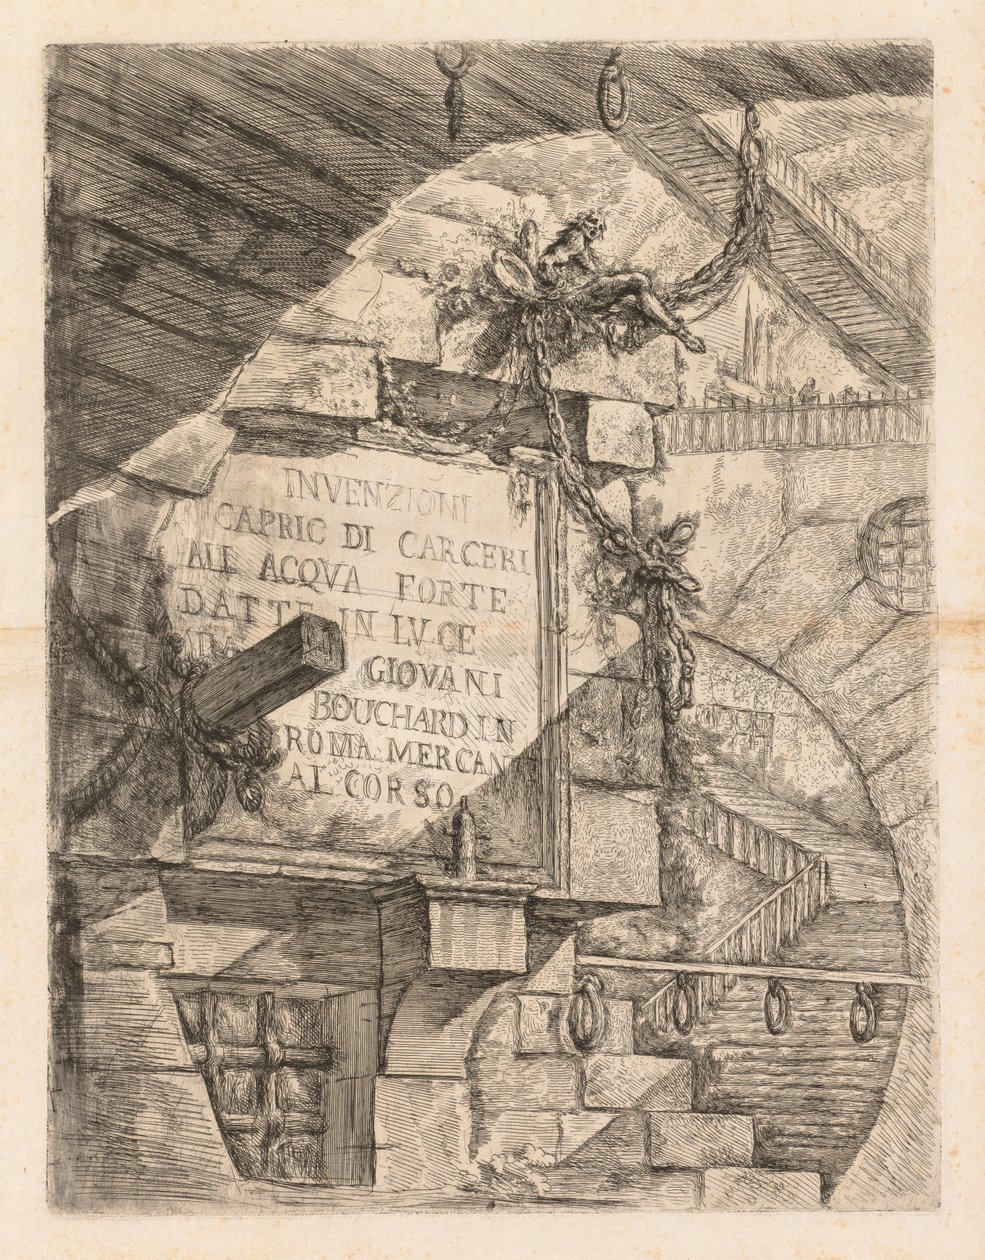 INVENZIONI
CAPRIC DI CARCERI
ALL ACQVA FORTE
DATTE IN LVCE
DA GIOVANI
BOUCHARD IN
ROMA MERCAN
AL CORSO